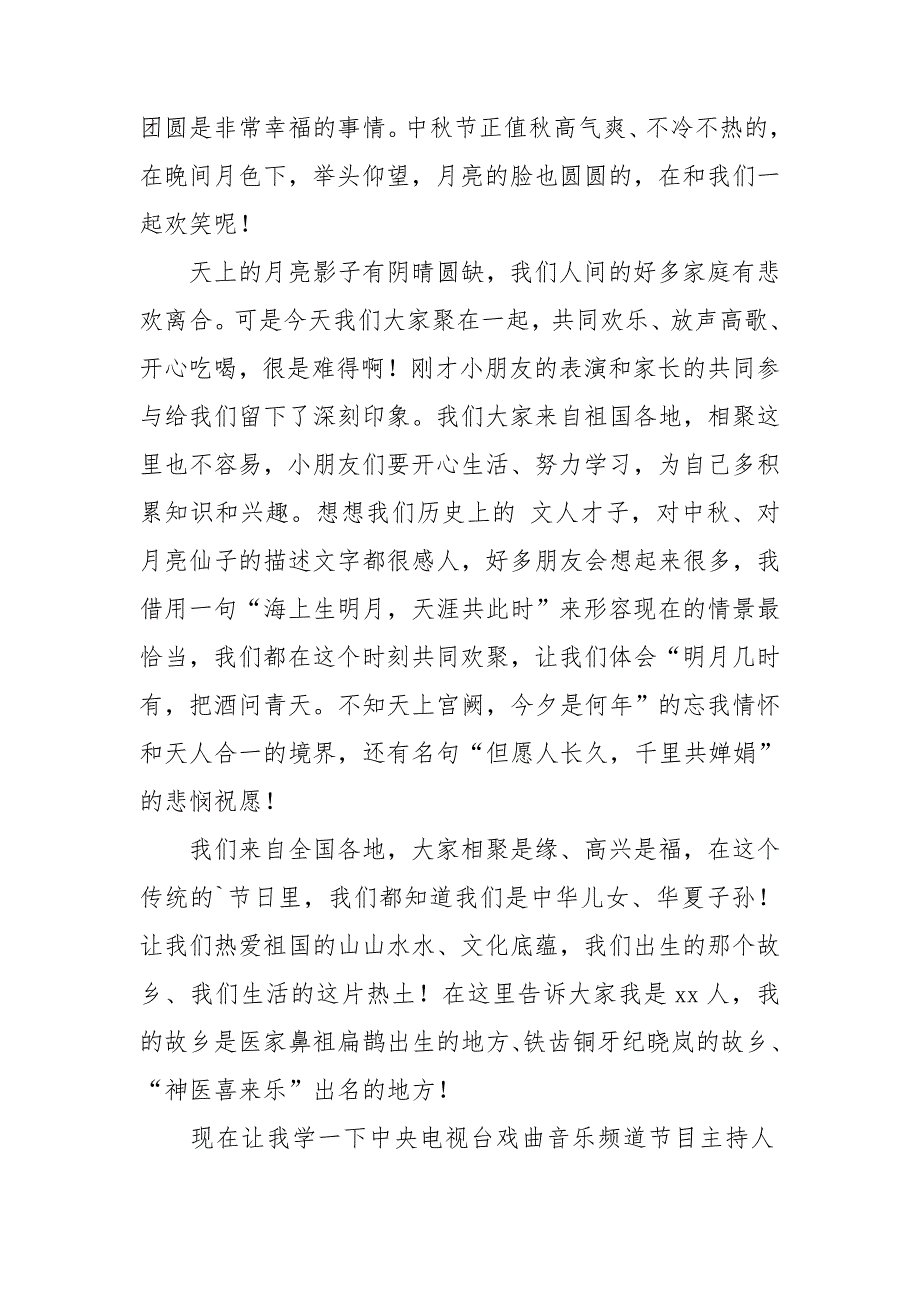 团圆是非常幸福的事情。中秋节正值秋高气爽、不冷不热的，
在晚间月色下，举头仰望，月亮的脸也圆圆的，在和我们一
起欢笑呢！
天上的月亮影子有阴晴圆缺，我们人间的好多家庭有悲
欢离合。可是今天我们大家聚在一起，共同欢乐、放声高歌、
开心吃喝，很是难得啊！刚才小朋友的表演和家长的共同参
与给我们留下了深刻印象。我们大家来自祖国各地，相聚这
里也不容易，小朋友们要开心生活、努力学习，为自己多积
累知识和兴趣。想想我们历史上的 文人才子，对中秋、对
月亮仙子的描述文字都很感人，好多朋友会想起来很多，我
借用一句“海上生明月，天涯共此时”来形容现在的情景最
恰当，我们都在这个时刻共同欢聚，让我们体会“明月几时
有，把酒问青天。不知天上宫阙，今夕是何年”的忘我情怀
和天人合一的境界，还有名句“但愿人长久，千里共婵娟”
的悲悯祝愿！
我们来自全国各地，大家相聚是缘、高兴是福，在这个
传统的`节日里，我们都知道我们是中华儿女、华夏子孙！
让我们热爱祖国的山山水水、文化底蕴，我们出生的那个故
乡、我们生活的这片热土！在这里告诉大家我是 xx 人，我
的故乡是医家鼻祖扁鹊出生的地方、铁齿铜牙纪晓岚的故乡、
“神医喜来乐”出名的地方！
现在让我学一下中央电视台戏曲音乐频道节目主持人